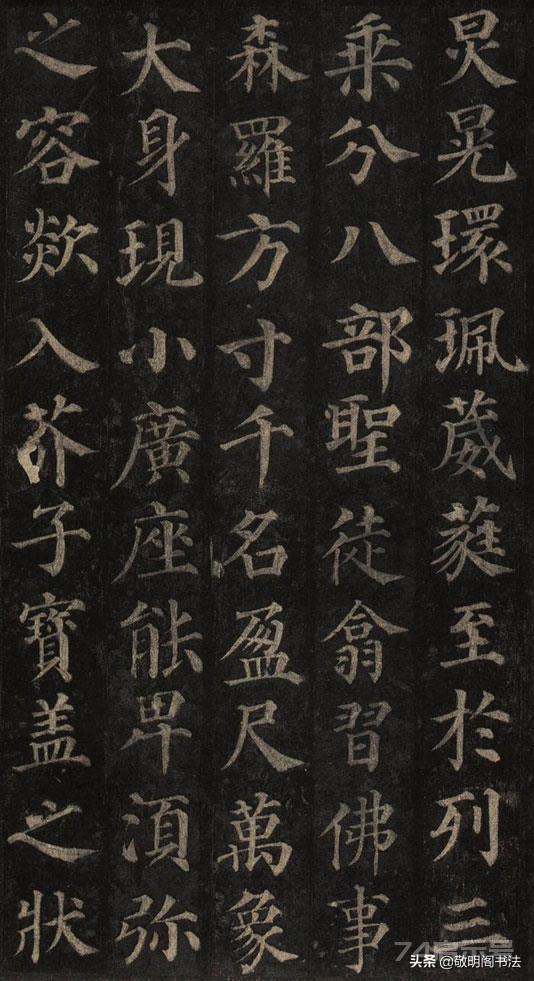 炅晃環珮葳蕤至於列三
乘分八部聖徒翕習佛事
森羅方寸千名盈尺萬象
大身現小廣座能卑湏弥
之容欻入芥子寶盖之狀
头条 @敬明阁书法